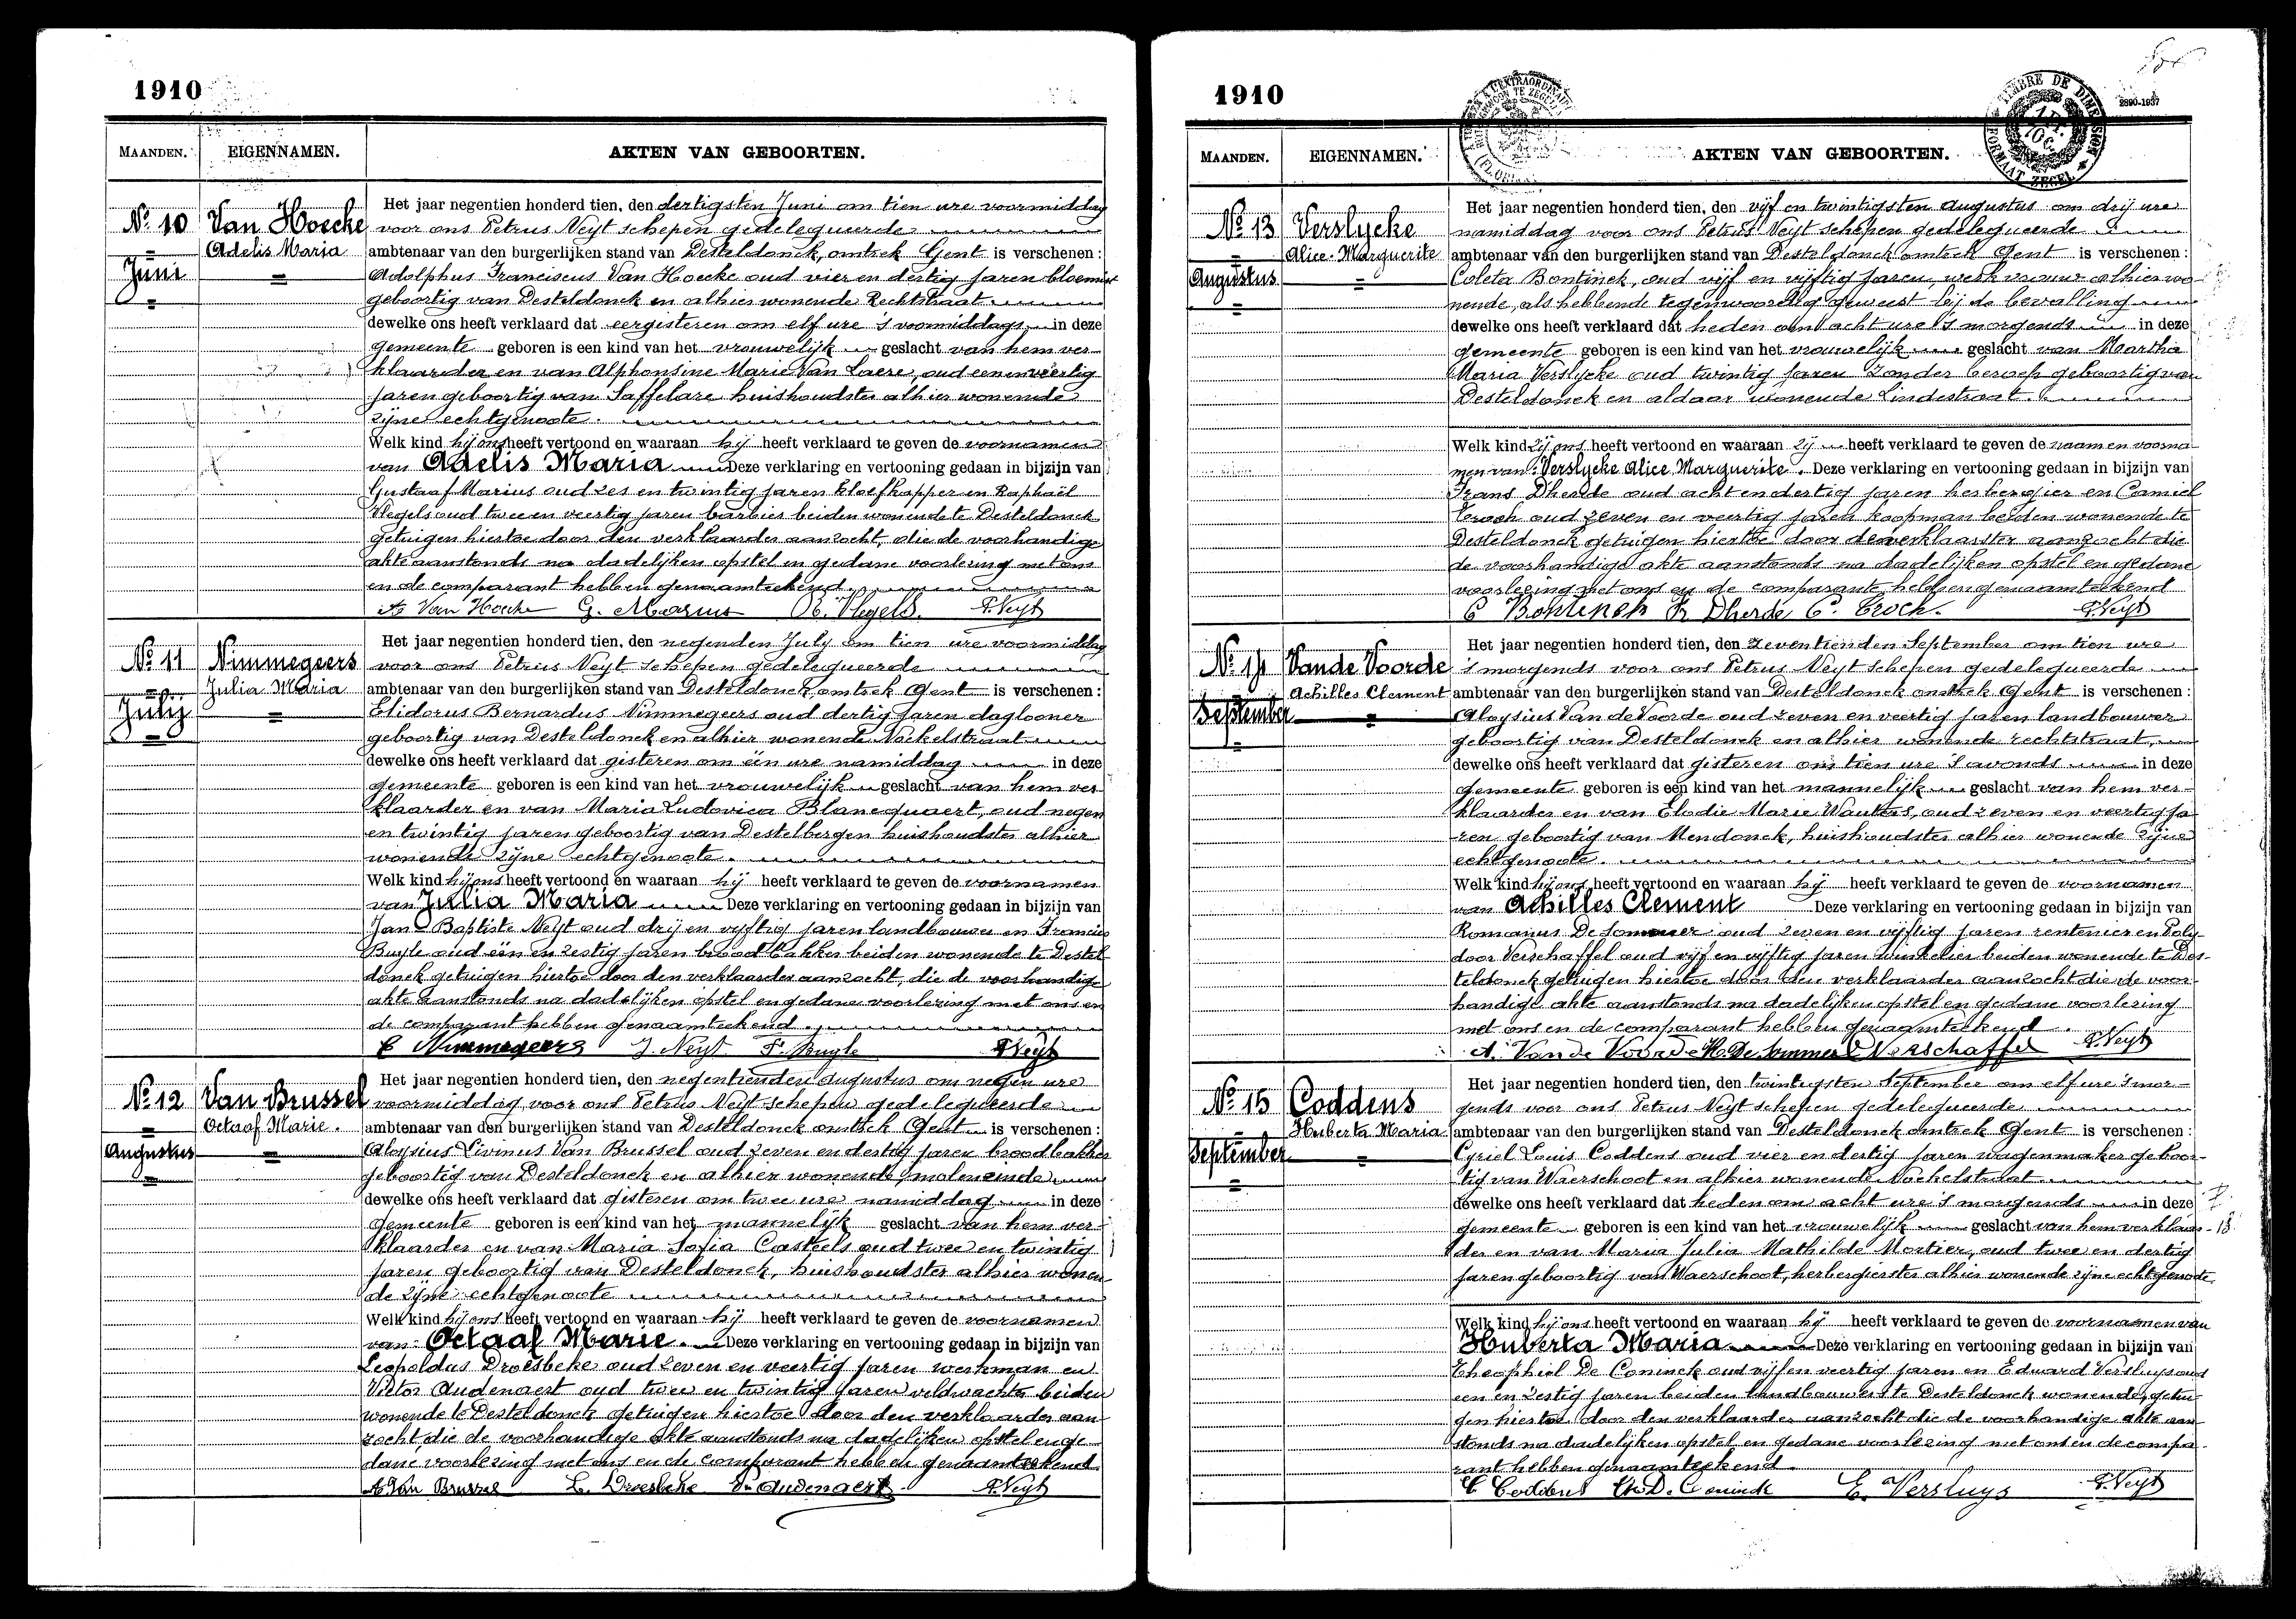 1910
MAANDEN. EIGENNAMEN. AKTEN VAN GEBOORTEN.
Nº 10
Juni
Van Hoecke
Adelis Maria
Het jaar negentien honderd tien, den dertigsten Juni om tien ure voormiddag
voor ons Petrus Neyt schepen gedelegueerde
ambtenaar van den burgerlijken stand van Desteldonck, omtrek Gent is verschenen :
Adolphus Franciscus Van Hoecke oud vier en dertig jaren bloemist
geboortig van Desteldonck en alhier wonende Rechtstraat
dewelke ons heeft verklaard dat eergisteren om elf ure 's voormiddags in deze
gemeente geboren is een kind van het vrouwelijk geslacht van hem ver-
klaarder en van Alphonsine Marie Van Laere, oud een en veertig
jaren geboortig van Saffelare huishoudster alhier wonende
zijne echtgenoote.
Welk kind hij ons heeft vertoond en waaraan hij heeft verklaard te geven de voornamen
van Adelis Maria Deze verklaring en vertooning gedaan in bijzijn van
Gustaaf Marius oud zes en twintig jaren kloefkapper en Raphaël
Vlegels oud twee en veertig jaren barbier beiden wonende te Desteldonck
getuigen hiertoe door den verklaarder aanzocht, die de voorhandige
akte aanstonds na dadelijken opstel en gedane voorlezing met ons
en de comparant hebben genaamteekend.
A Van Hoecke G. Marius R. Vlegels. P. Neyt
Nº 11
July
Nimmegeers
Julia Maria
Het jaar negentien honderd tien, den negenden July om tien ure voormiddag
voor ons Petrus Neyt schepen gedelegueerde
ambtenaar van den burgerlijken stand van Desteldonck omtrek Gent is verschenen :
Elidorus Bernardus Nimmegeers oud dertig jaren daglooner
geboortig van Desteldonck en alhier wonende Nockelstraat
dewelke ons heeft verklaard dat gisteren om één ure namiddag in deze
gemeente geboren is een kind van het vrouwelijk geslacht van hem ver-
klaarder en van Maria Ludovica Blancquaert, oud negen
en twintig jaren geboortig van Destelbergen huishoudster alhier
wonende zijne echtgenoote.
Welk kind hij ons heeft vertoond en waaraan hij heeft verklaard te geven de voornamen
van Julia Maria Deze verklaring en vertooning gedaan in bijzijn van
Jan Baptiste Neyt oud drij en vijftig jaren landbouwer en Francies
Buyle oud één en zestig jaren broodbakker beiden wonende te Destel-
donck getuigen hiertoe door den verklaarder aanzocht, die de voorhandige
akte aanstonds na dadelijken opstel en gedane voorlezing met ons en
de comparant hebben genaamteekend.
E Nimmegeers J. Neyt F. Buyle P. Neyt
Nº 12
Augustus
Van Brussel
Octaaf Marie.
Het jaar negentien honderd tien, den negentienden Augustus om negen ure
voormiddag voor ons Petrus Neyt schepen gedelegueerde
ambtenaar van den burgerlijken stand van Desteldonck omtrek Gent is verschenen :
Aloysius Livinus Van Brussel oud zeven en dertig jaren broodbakker
geboortig van Desteldonck en alhier wonende moleneinde
dewelke ons heeft verklaard dat gisteren om twee ure namiddag in deze
gemeente geboren is een kind van het mannelijk geslacht van hem ver-
klaarder en van Maria Sofia Casteels oud twee en twintig
jaren geboortig van Desteldonck, huishoudster alhier wonen-
de zijne echtgenoote
Welk kind hij ons heeft vertoond en waaraan hij heeft verklaard te geven de voornamen
van: Octaaf Marie. Deze verklaring en vertooning gedaan in bijzijn van
Leopoldus Droesbeke oud zeven en veertig jaren werkman en
Victor Audenaert oud twee en twintig jaren veldwachter beiden
wonende te Desteldonck getuigen hiertoe door den verklaarder aan-
zocht, die de voorhandige akte aanstonds na dadelijken opstel en ge-
dane voorlezing met ons en de comparant hebben genaamteekend
A Van Brussel L. Droesbeke V. Audenaert P. Neyt
1910
TIMBRE DE DIMENSION
FORMAAT ZEGEL
2890-1937
MAANDEN. EIGENNAMEN. AKTEN VAN GEBOORTEN.
Nº 13
Augustus
Verslycke
Alice Marguerite
Het jaar negentien honderd tien, den vijf en twintigsten augustus om drij ure
namiddag voor ons Petrus Neyt schepen gedelegueerde
ambtenaar van den burgerlijken stand van Desteldonck omtrek Gent is verschenen :
Coleta Bontinck, oud vijf en vijftig jaren, werkvrouw alhier wo-
nende, als hebbende tegenwoordig geweest bij de bevalling
dewelke ons heeft verklaard dat heden om acht ure 's morgends in deze
gemeente geboren is een kind van het vrouwelijk geslacht van Martha
Maria Verslycke oud twintig jaren zonder beroep geboortig van
Desteldonck en aldaar wonende Lindestraat.
Welk kind zij ons heeft vertoond en waaraan zij heeft verklaard te geven de naam en voorna-
men van: Verslycke Alice Marguerite. Deze verklaring en vertooning gedaan in bijzijn van
Frans Dherde oud acht en dertig jaren herbergier en Camiel
Croch oud zeven en veertig jaren koopman beiden wonende te
Desteldonck getuigen hiertoe door de verklaarster aangezocht die
de voorhandige akte aanstonds na dadelijken opstel en gedane
voorlezing met ons en de comparante hebben genaamteekend
C Bontinck Fr Dherde C. Croch. P. Neyt
Nº 14
September
Vande Voorde
Achilles Clement
Het jaar negentien honderd tien, den zeventienden September om tien ure
's morgends voor ons Petrus Neyt schepen gedelegueerde
ambtenaar van den burgerlijken stand van Desteldonck omtrek Gent is verschenen :
Aloysius Van de Voorde oud zeven en veertig jaren landbouwer
geboortig van Desteldonck en alhier wonende rechtstraat,
dewelke ons heeft verklaard dat gisteren om tien ure 's avonds in deze
gemeente geboren is een kind van het mannelijk geslacht van hem ver-
klaarder en van Elodie Marie Wauters, oud zeven en veertig ja-
ren geboortig van Mendonck, huishoudster alhier wonende zijne
echtgenoote.
Welk kind hij ons heeft vertoond en waaraan hij heeft verklaard te geven de voornamen
van Achilles Clement Deze verklaring en vertooning gedaan in bijzijn van
Romanus De Sommer oud zeven en vijftig jaren rentenier en Poly-
door Verschaffel oud vijf en vijftig jaren winkelier beiden wonende te Des-
teldonck getuigen hiertoe door den verklaarder aanzocht die de voor-
handige akte aanstonds na dadelijken opstel en gedane voorlezing
met ons en de comparant hebben genaamteekend.
A. Van de Voorde R. De Sommer P Verschaffel P. Neyt
Nº 15
September
Coddens
Huberta Maria
Het jaar negentien honderd tien, den twintigsten September om elf ure 's mor-
gends voor ons Petrus Neyt schepen gedelegueerde
ambtenaar van den burgerlijken stand van Desteldonck omtrek Gent is verschenen :
Cyriel Louis Coddens oud vier en dertig jaren wagenmaker geboor-
tig van Waerschoot en alhier wonende Nockelstraat
dewelke ons heeft verklaard dat heden om acht ure 's morgends in deze
gemeente geboren is een kind van het vrouwelijk geslacht van hem verklaar-
der en van Maria Julia Mathilde Mortier, oud twee en dertig
jaren geboortig van Waerschoot, herbergierster alhier wonende zijne echtgenoote
Welk kind hij ons heeft vertoond en waaraan hij heeft verklaard te geven de voornamen van
Huberta Maria Deze verklaring en vertooning gedaan in bijzijn van
Theophiel De Coninck oud vijf en veertig jaren en Eduard Versluys oud
een en zestig jaren beiden landbouwers te Desteldonck wonende, getui-
gen hiertoe door den verklaarder aanzocht die de voorhandige akte aan-
stonds na dadelijken opstel en gedane voorlezing met ons en de compa-
rant hebben genaamteekend
C Coddens Th. D. Coninck E. Versluys P. Neyt